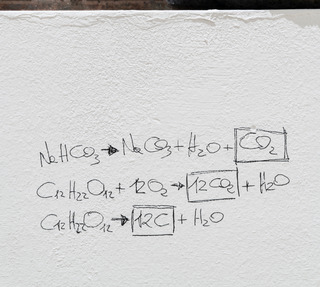 NaHCO3 → NaCO3 + H2O + CO2
C12H22O12 + 12O2 → 12CO2 + H2O
C12H22O12 → 12C + H2O